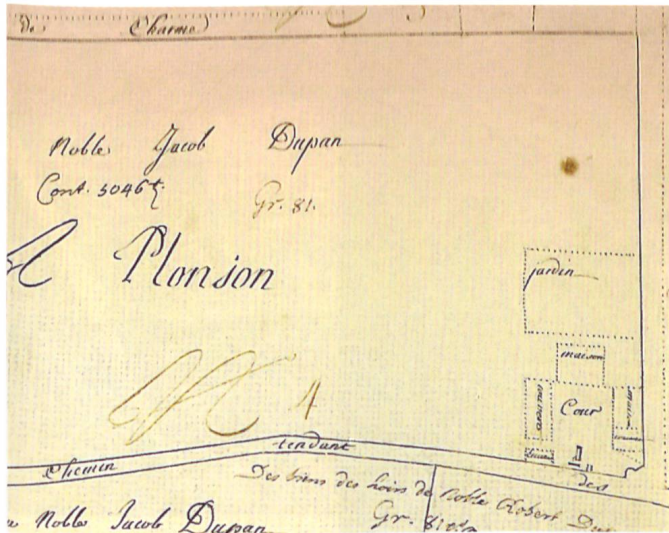 de Charme
Noble Jacob Dupan
Cont. 5046 t.
Gr. 81.
Plonjon
jardin
maison
Cour
4
Chemin tendant des
Des biens des hoirs de Noble Robert
Gr. 81
Noble Jacob Dupan